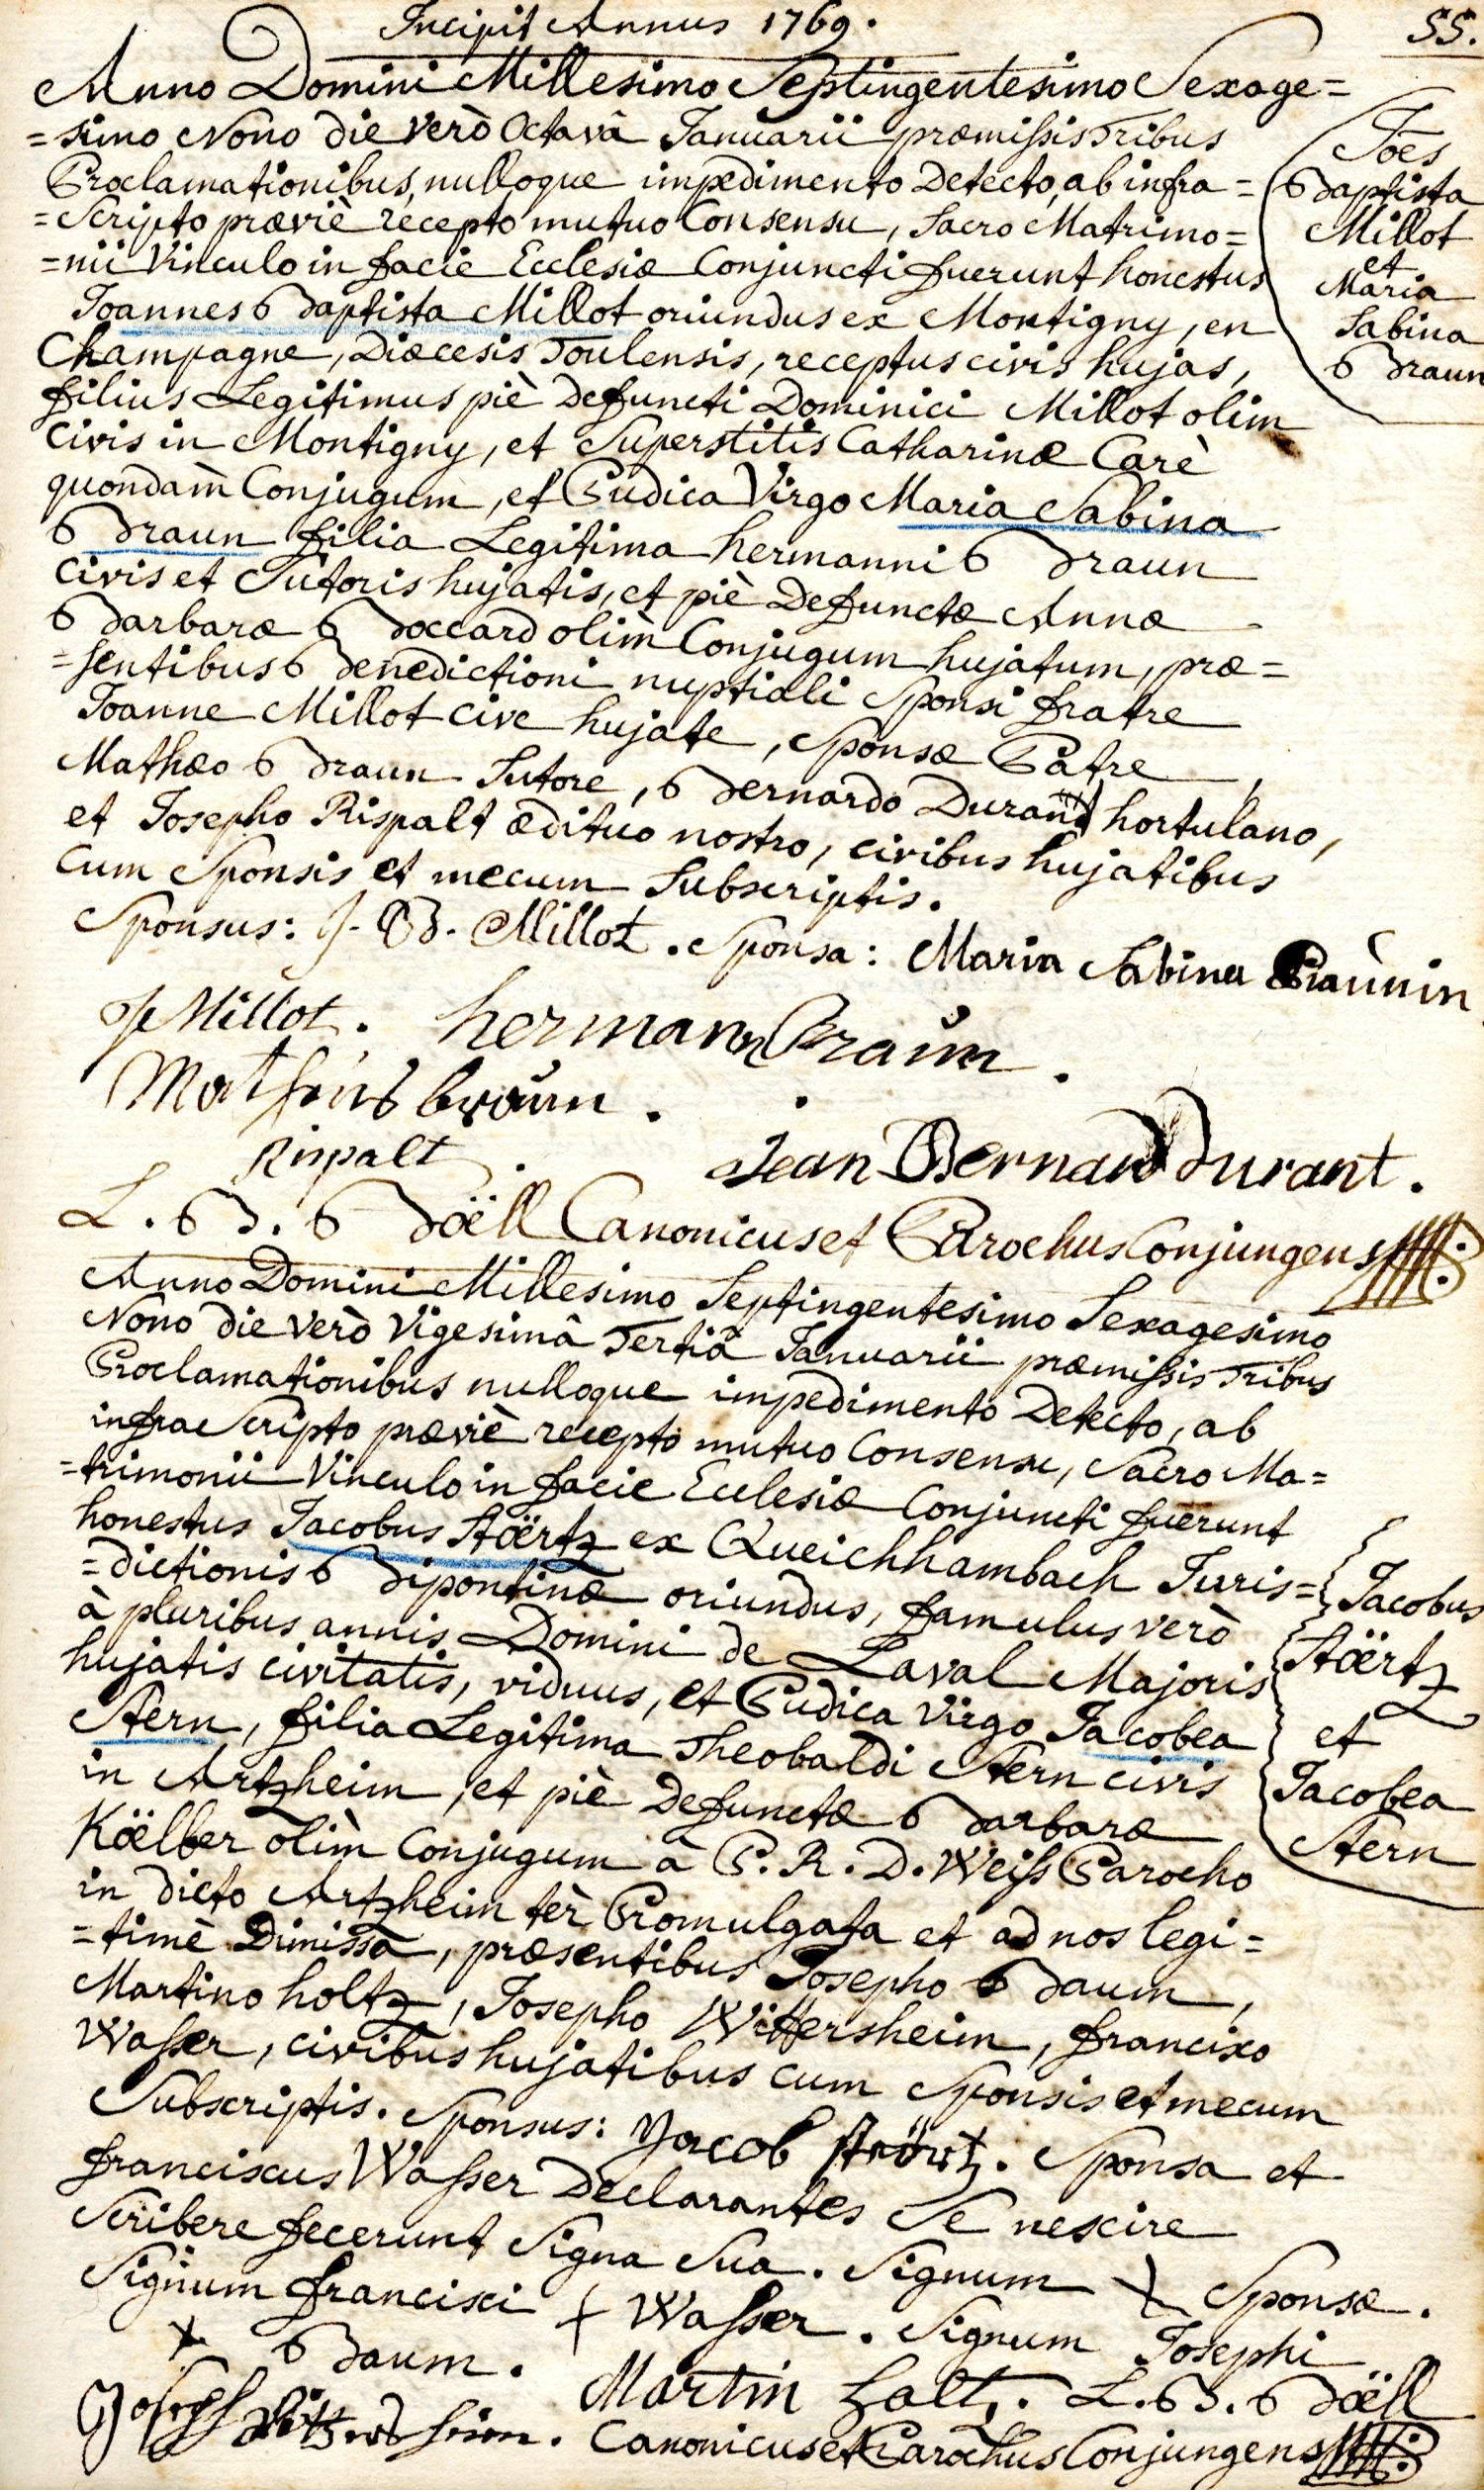 Incipit Annus 1769.
55.
Anno Domini Millesimo Septingentesimo Sexage=
=simo Nono die verò Octavâ Januarii præmissis Tribus
Proclamationibus, nulloque impedimento Detecto, ab infra=
=Scripto præviè recepto mutuo Consensu, Sacro Matrimo=
=nii Vinculo in facie Ecclesiæ Conjuncti fuerunt honestus
Joannes Baptista Millot oriundus ex Montigny, en
Champagne, Diœcesis Toulensis, receptus civis hujas,
filius Legitimus piè Defuncti Dominici Millot olim
Civis in Montigny, et Superstitis Catharinæ Carè
quondam Conjugum, et Pudica Virgo Maria Sabina
Braun filia Legitima hermanni Braun
Civis et Sutoris hujatis, et piè Defunctæ Annæ
Barbaræ Boccard olim Conjugum hujatum, præ=
=sentibus Benedictioni nuptiali Sponsi fratre
Joanne Millot cive hujate, Sponsæ Patre,
Mathæo Braun Sutore, Bernardo Durand hortulano,
et Josepho Rispalt ædituo nostro, civibus hujatibus
Cum Sponsis et mecum Subscriptis.
Sponsus: J. B. Millot. Sponsa: Maria Sabina Braunin
Joes
Baptista
Millot
et
Maria
Sabina
Braun
J Millot. hermann Braun.
Matheus braun.
Rispalt. Jean Bernard durant.
L. B. Boëll Canonicus et Parochus Conjungens
Anno Domini Millesimo Septingentesimo Sexagesimo
Nono die verò Vigesimâ Tertiâ Januarii præmissis Tribus
Proclamationibus nulloque impedimento Detecto, ab
infra Scripto præviè recepto mutuo Consensu, Sacro Ma=
=trimonii Vinculo in facie Ecclesiæ Conjuncti fuerunt
honestus Jacobus Stöërtz ex Queichhambach Juris=
=dictionis Bipontinæ oriundus, famulus verò
à pluribus annis Domini de Laval Majoris
hujatis civitatis, viduus, et Pudica Virgo Jacobea
Stern, filia Legitima Theobaldi Stern civis
in Artzheim, et piè Defunctæ Barbaræ
Köelber olim Conjugum à P. R. D. Weiss Parocho
in dicto Artzheim tèr Promulgata et ad nos legi=
=timè Dimissa, præsentibus Josepho Baum,
Martino holtz, Josepho Wittersheim, francisco
Wasser, civibus hujatibus cum Sponsis et mecum
Subscriptis. Sponsus: Jacob Stört. Sponsa et
franciscus Wasser Declarantes Se nescire
Scribere fecerunt Signa Sua. Signum + Sponsæ.
Signum francisci + Wasser. Signum Josephi
+ Baum. Martin holtz. L. B. Boëll
Joseph Wittersheim. Canonicus et Parochus Conjungens
Jacobus
Stöërtz
et
Jacobea
Stern